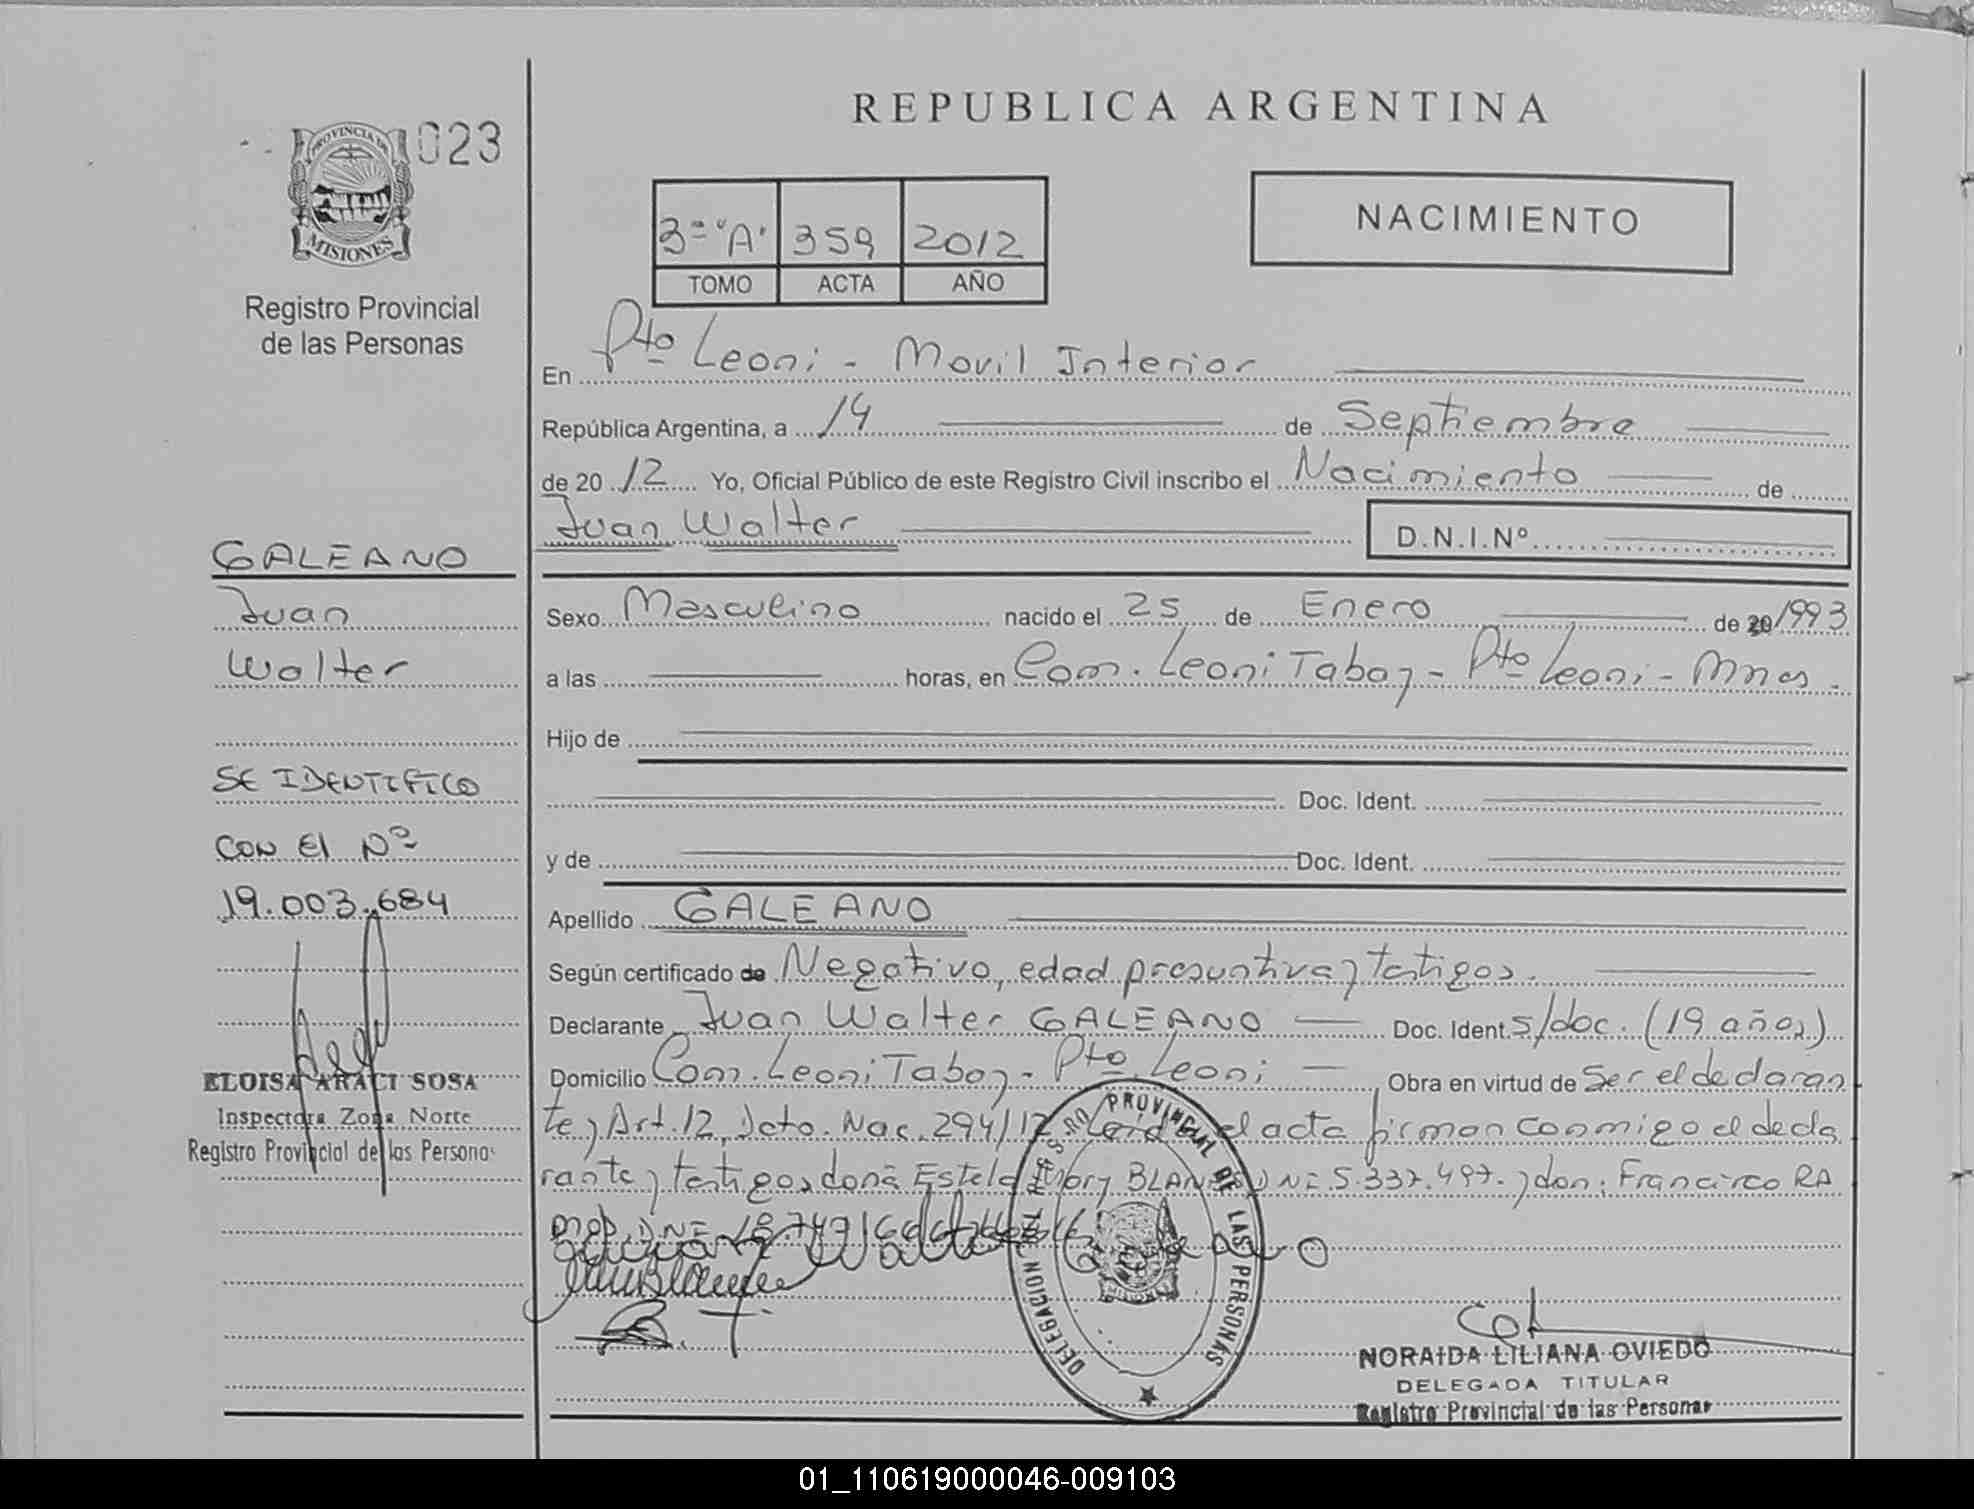 REPUBLICA ARGENTINA
023
PROVINCIA DE
MISIONES
Registro Provincial
de las Personas
3ª "A" 359 2012
TOMO ACTA AÑO
NACIMIENTO
En Pto Leoni - Movil Interior
República Argentina, a 14 de Septiembre
de 20 12 Yo, Oficial Público de este Registro Civil inscribo el Nacimiento de
Juan Walter D.N.I.Nº
GALEANO
Juan
Walter
SE IDENTIFICO
CON El Nº
19.003.684
ELOISA ARACI SOSA
Inspectora Zona Norte
Registro Provincial de las Personas
Sexo Masculino nacido el 25 de Enero de 20 1993
a las horas, en Com. Leoni Tabay - Pto Leoni - Mnes.
Hijo de
Doc. Ident.
y de Doc. Ident.
Apellido GALEANO
Según certificado de Negativo, edad presuntiva y testigos.
Declarante Juan Walter GALEANO Doc. Ident. s/doc. (19 años)
Domicilio Com. Leoni Tabay - Pto Leoni Obra en virtud de Ser el declaran
te y Art. 12, Dcto. Nac. 294/12 Leida el acta firman conmigo el decla
rante y testigos doña Estela Mary DNI 5.337.497. y don: Francisco RA
DNI
Walter
B. T.
REGISTRO PROVINCIAL DE LAS PERSONAS
DELEGACION
MISIONES
NORAIDA LILIANA OVIEDO
DELEGADA TITULAR
Registro Provincial de las Personas
01_110619000046-009103